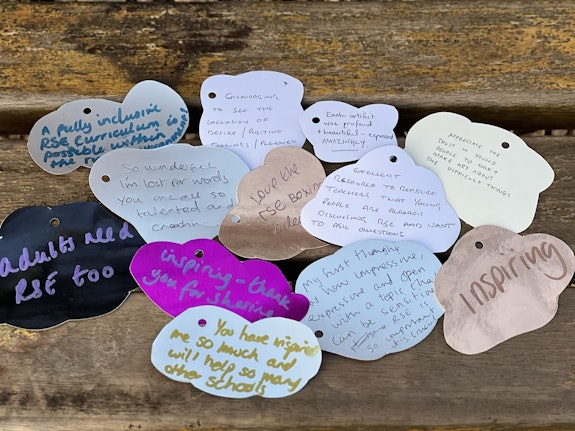 A fully inclusive
RSE Curriculum is
possible within
Encouraging
to see the
inclusion of
desire / positive
feelings / pleasure
Each artifact
was profound
+ beautiful - expressed
AMAZINGLY
appreciate the
trust it would
people to take
make art about
the difficult things
So wonderful
I'm lost for words
you are all so
talented and
creative
Love the
rse boxing
Excellent
resource to reassure
teachers that young
people are already
discussing RSE and want
to ask questions
adults need
RSE too
inspiring - thank
you for sharing
My first thought
how impressive,
expressive and open
with a topic that
can be sensitive
RSE is
so important
Inspiring
You have inspired
me so much and
will help so many
other schools